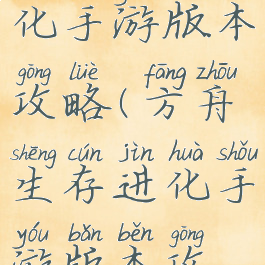 化手游版本
gōng lüè fāng zhōu
攻略(方舟
shēng cún jìn huà shǒu
生存进化手
yóu bǎn běn gōng
游版本攻